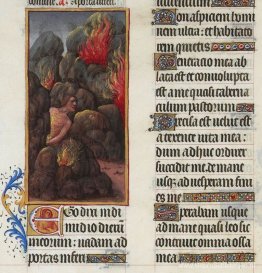 Non aspiciam homi
nem ultra: et habitato
rem quietis
Generatio mea ab
lata est et conuolupta
est a me quasi taberna
culum pastorum
Precisa est uelut
a texente uita mea:
dum adhuc ordirer
succidit me de mane
usq; ad uesperam fini
es me
Sperabam usque
ad mane quasi leo sic
contriuit omnia ossa
mea
Ego dixi in di
midio dierum
meorum: uadam ad
portas inferi